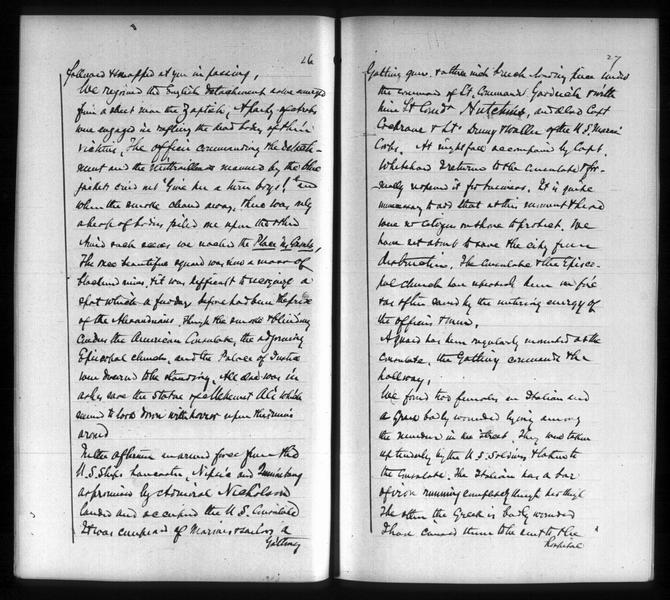 26
followed & snapped at you in passing,
We rejoined the English detachment as we emerged
from a street near the Zaptieh, A party of Arabs
were engaged in rifling the dead bodies of their
victims. The officer commanding the detach-
ment and the Mitrailleuse manned by the blue
jackets cried out "Give her a turn boys!" and
when the smoke cleared away, there was only
a heap of bodies piled up upon the third
Amid such scenes we reached the Place des Consuls,
The once beautiful square was now a mass of
blackened ruins, & it was difficult to recognize a
spot which a few days before had been the pride
of the Alexandrians. Through the smoke & blinding
cinders the American Consulate, the adjoining
Episcopal church, and the Palace of Justice
were discerned to be standing, All else was in
ashes save the statue of Mehemet Ali which
seemed to look down with horror upon the ruins
around
In the afternoon an armed force from the
U.S. Ships Lancaster, Nipsic and Quinnebaug
as promised by Admiral Nicholson
landed and occupied the U.S. Consulate
It was composed of Marines & sailors, a
Gatling
27
Gatling gun, & a three inch breech loading piece under
the command of Lt. Command. Goodrich & with
him Lt Comdr Hutchins, and also Capt
Cochrane & Lts Denny & Waller of the U.S. Marine
Corps. At nightfall accompanied by Capt.
Whitehead I returned to the Consulate & for-
mally reopened it for business. It is quite
unnecessary to add that at this moment there
were no citizens on shore to protect. We
have set about to save the city from
destruction. The Consulate & the Episco-
pal church have repeatedly been on fire
& as often saved by the untiring energy of
the officers & men.
A guard has been regularly mounted at the
Consulate, the Gatling commands the
hallway,
We found two females an Italian and
a Greek badly wounded lying among
the number in the street. They were taken
up tenderly by the U.S. Soldiers & taken to
the Consulate. The Italian has a bar
of iron running completely through her thigh
The other the Greek is badly wounded
I have caused them to be sent to the
hospital